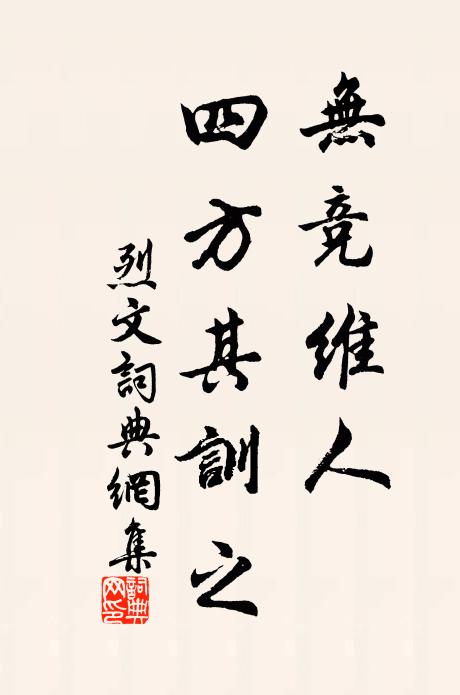 無竞維人
四方其訓之
烈文詞典網集
詞典網印